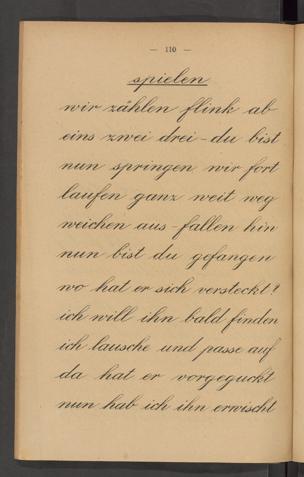 — 110 —
spielen
wir zählen flink ab
eins zwei drei - du bist
nun springen wir fort
laufen ganz weit weg
weichen aus - fallen hin
nun bist du gefangen
wo hat er sich versteckt?
ich will ihn bald finden
ich lausche und passe auf
da hat er vorgeguckt
nun hab ich ihn erwischt